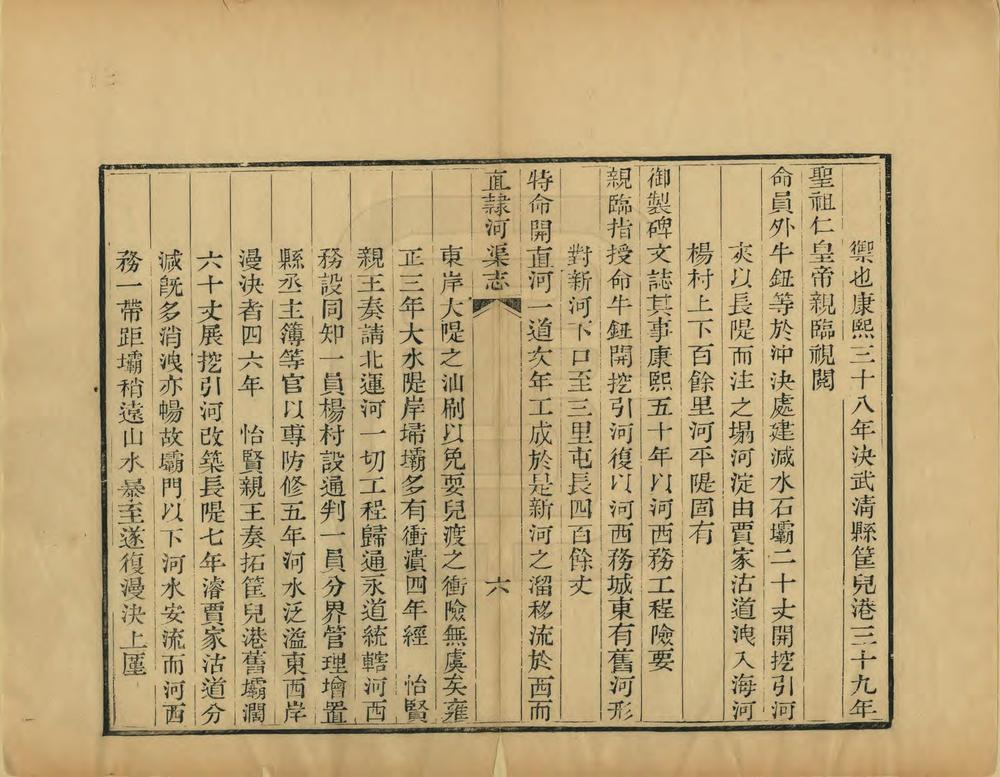 禦也康熙三十八年決武清縣筐兒港三十九年
聖祖仁皇帝親臨視閱
命員外牛鈕等於沖決處建減水石壩二十丈開挖引河
夾以長隄而注之塌河淀由賈家沽道洩入海河
楊村上下百餘里河平隄固有
御製碑文誌其事康熙五十年以河西務工程險要
親臨指授命牛鈕開挖引河復以河西務城東有舊河形
對新河下口至三里屯長四百餘丈
特命開直河一道次年工成於是新河之溜移流於西而
直隸河渠志
六
東岸大隄之汕刷以免耍兒渡之衝險無虞矣雍
正三年大水隄岸埽壩多有衝潰四年經 怡賢
親王奏請北運河一切工程歸通永道統轄河西
務設同知一員楊村設通判一員分界管理增置
縣丞主簿等官以專防修五年河水泛溢東西岸
漫決者四六年 怡賢親王奏拓筐兒港舊壩濶
六十丈展挖引河改築長隄七年濬賈家沽道分
減旣多消洩亦暢故壩門以下河水安流而河西
務一帶距壩稍遠山水暴至遂復漫決上匯